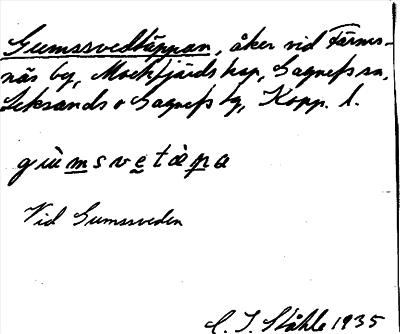 Gumssvedtäppan, åker vid Färms-
näs by, Mockfjärds kap, Gagnefs sn,
Leksands o Gagnefs tg, Kopp. l.
gùmsvetàpa
Vid Gumssveden
C. I. Ståhle 1935